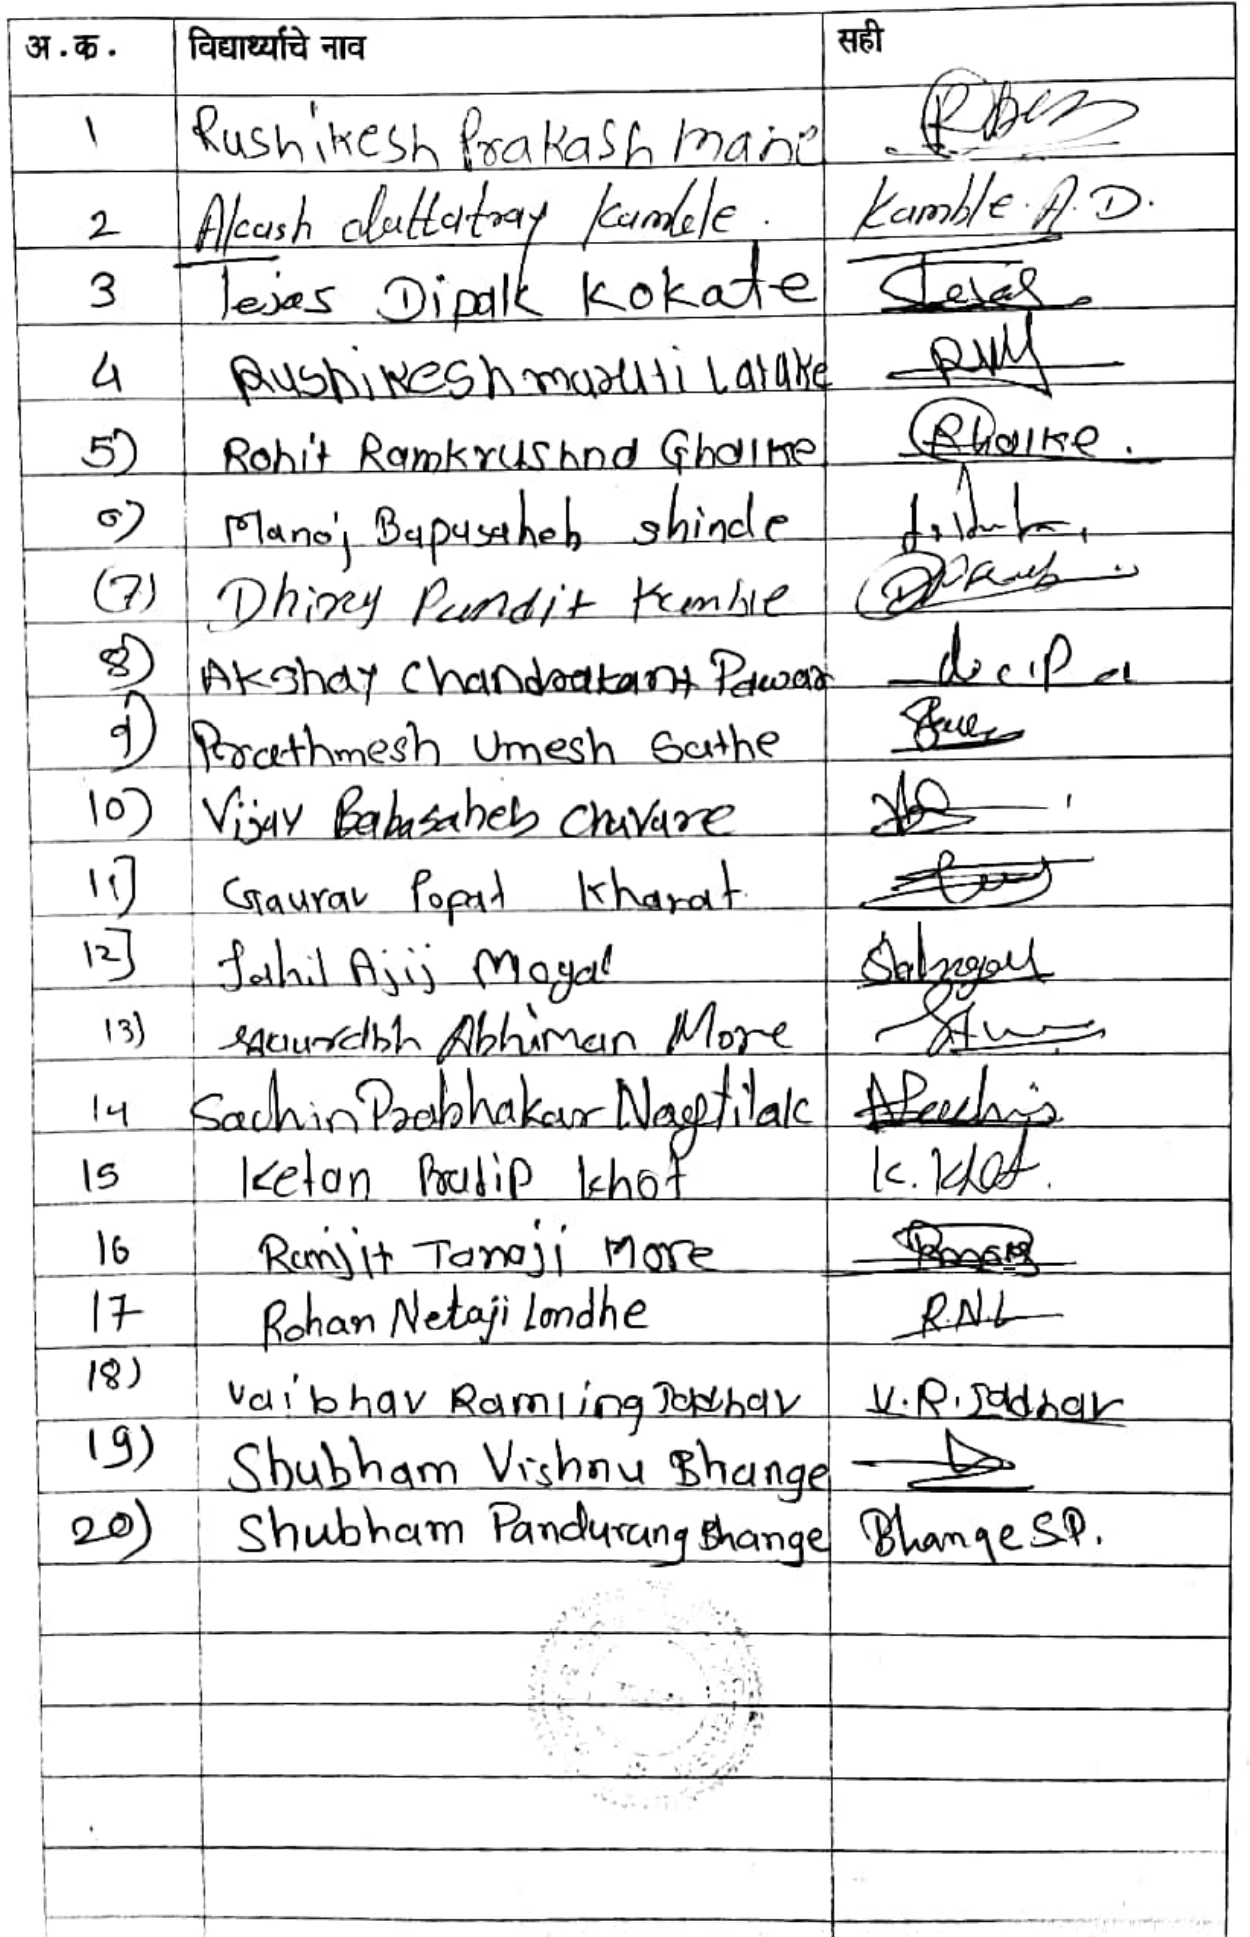 अ.क्र. विद्यार्थ्याचे नाव सही
1 Rushikesh Prakash mane
2 Akash duttatray kamble. Kamble. A. D.
3 Tejas Dipak Kokate Tejas
4 Rushikesh maruti Latake
5) Rohit Ramkrushna Ghalke Rhalke.
6) Manoj Bapusaheb shinde
(7) Dhiraj Pandit Kamble
8) Akshay Chandrakant Pawar
9) Prathmesh Umesh Sathe
10) Vijay Babasaheb Chavare
11] Gaurav Popat Kharat.
12] Sahil Ajij Mogal
13) saurabh Abhiman More
14 Sachin Prabhakar Nagtilak
15 Ketan Pradip khot K. Khot.
16 Ranjit Tanaji More
17 Rohan Netaji Londhe R.N.L
18) vaibhav Ramling Jadhav V.R.Jadhav
19) Shubham Vishnu Bhange
20) Shubham Pandurang Bhange Bhange S.P.